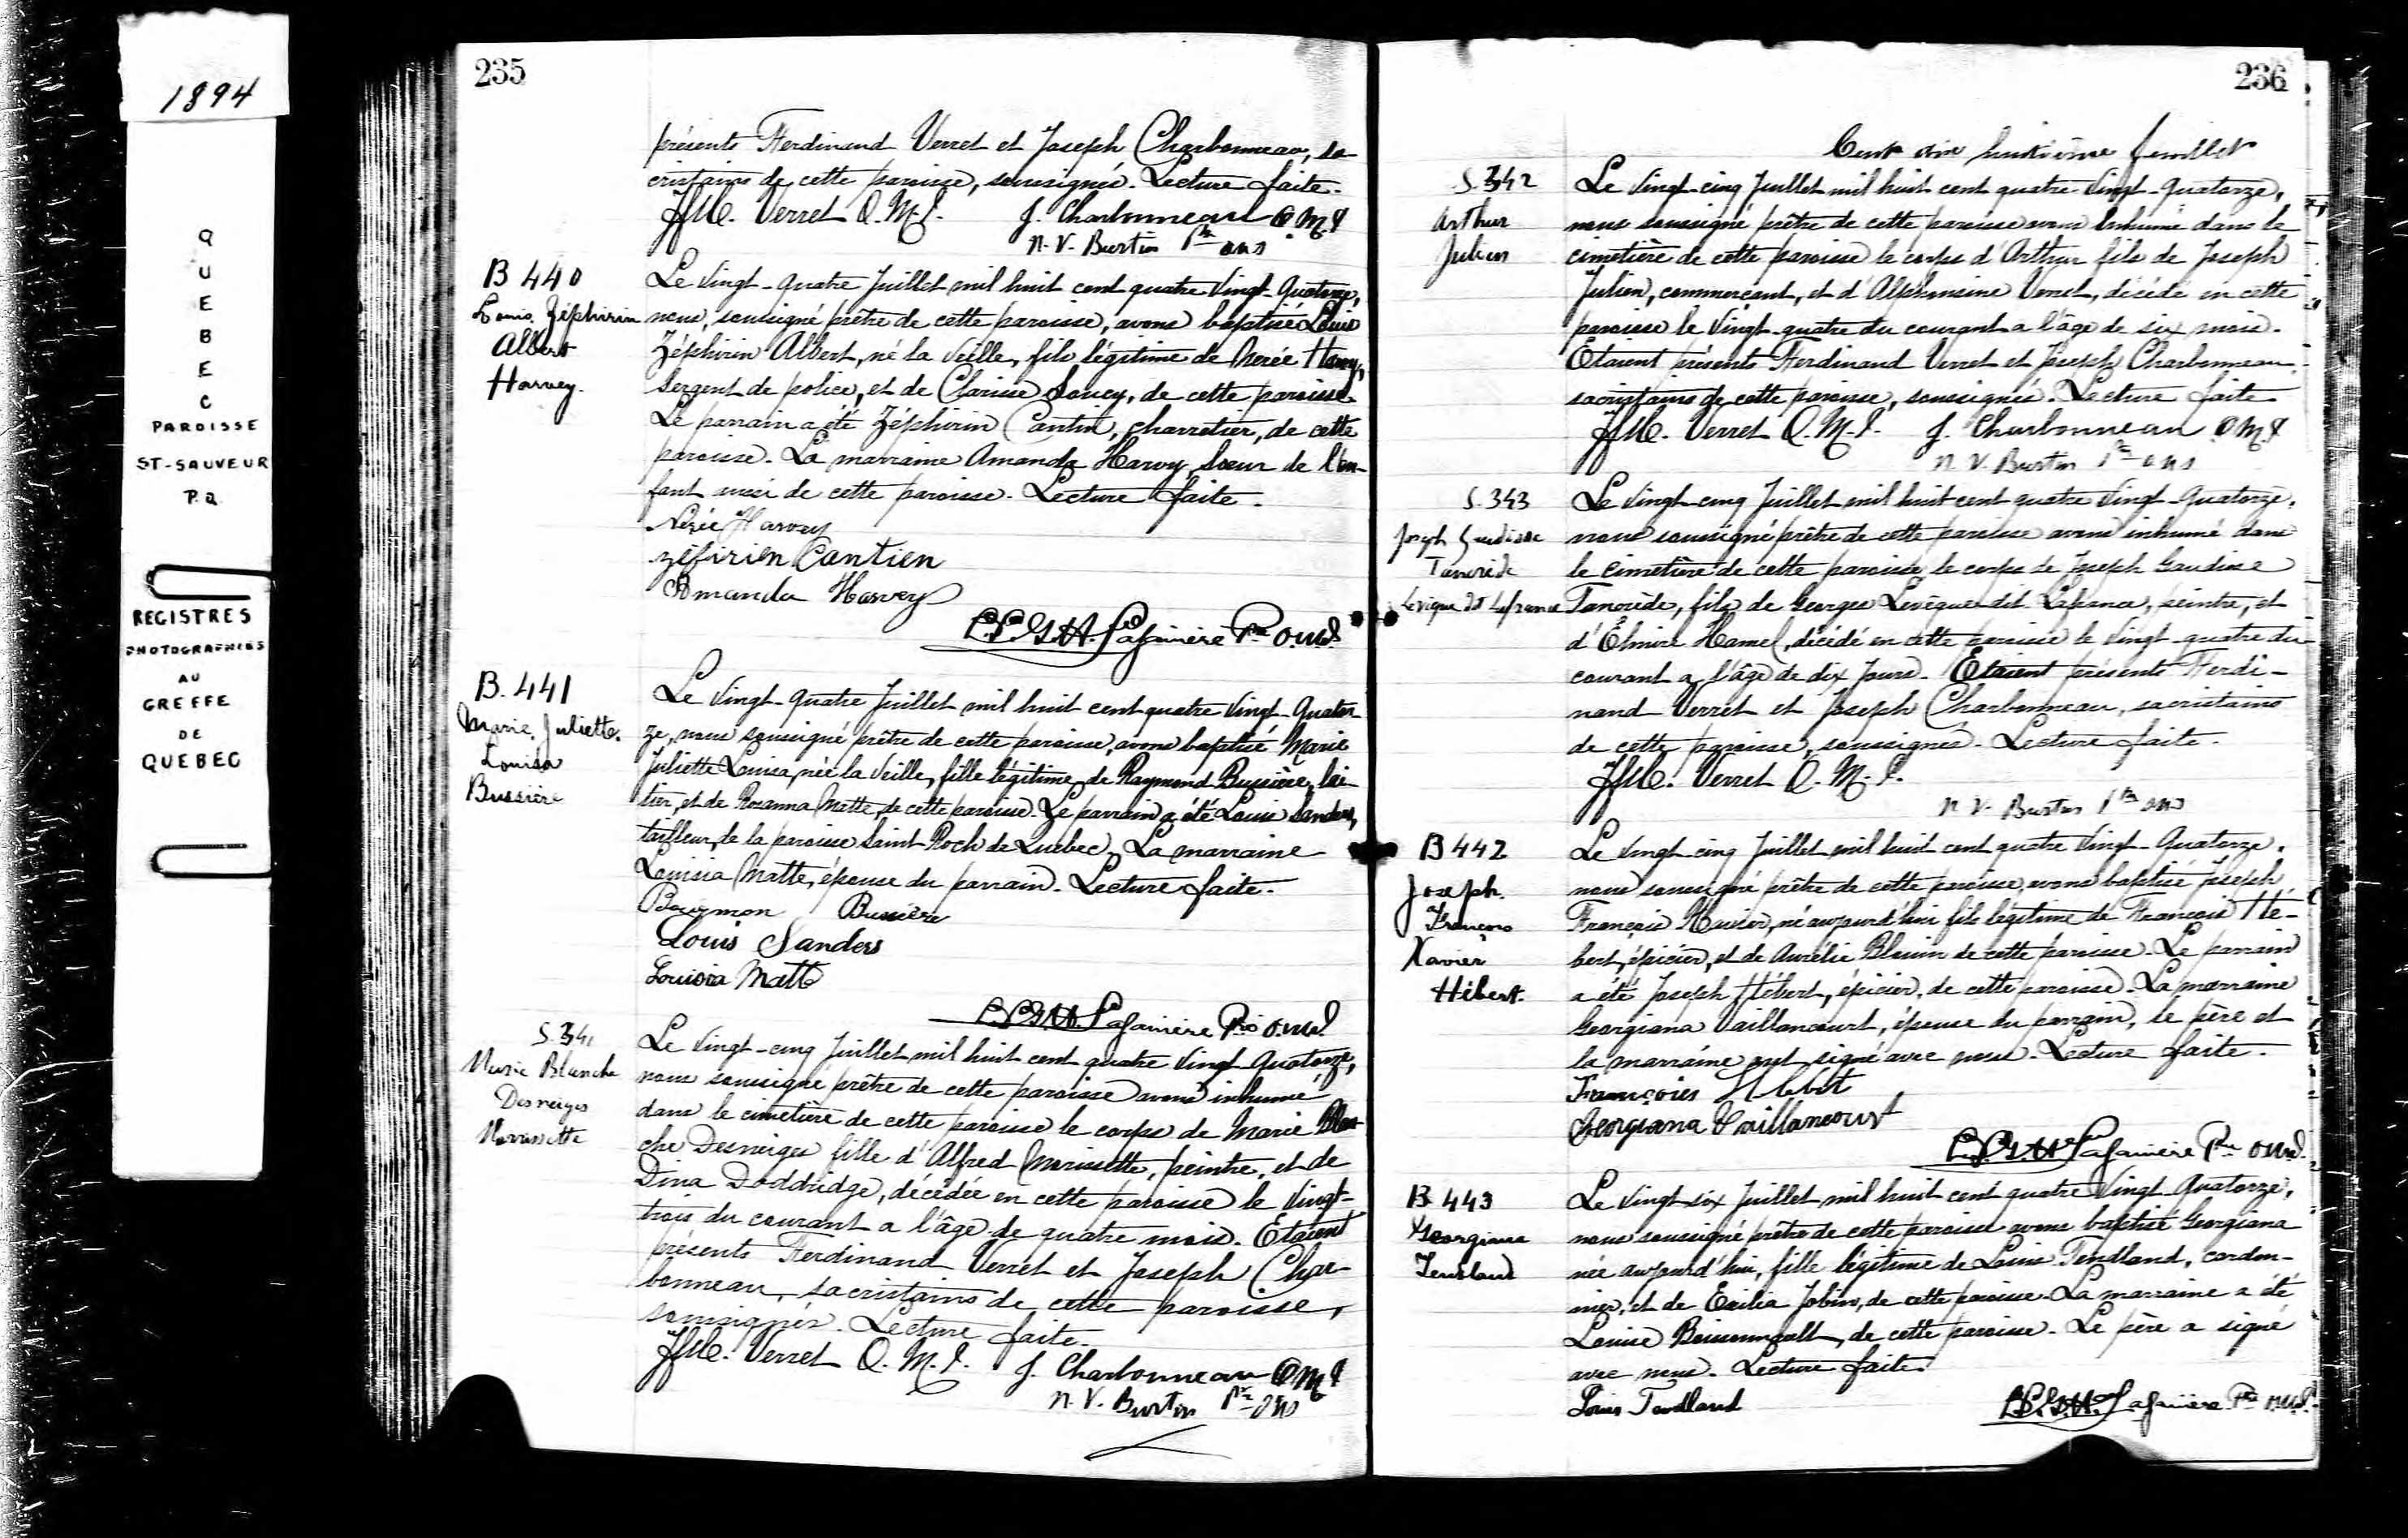 1894
QUEBEC
PAROISSE
ST-SAUVEUR
P.Q
REGISTRES
PHOTOGRAPHIES
AU
GREFFE
DE
QUEBEC
235
présents Ferdinand Verret et Joseph Charbonneau, sa-
cristains de cette paroisse, soussignés. Lecture faite.
Verret O.M.I. J. Charbonneau O M I
N. V. Burtin Ptre OMI
B 440
Louis Zéphirin
Albert
Harvey.
Le vingt-quatre Juillet mil huit cent quatre vingt-quatorze,
nous, soussigné prêtre de cette paroisse, avons baptisé Louis
Zéphirin Albert, né la veille, fils légitime de Nérée Harvey,
sergent de police, et de Clarisse Soucy, de cette paroisse.
Le parrain a été Zéphirin Cantin, charretier, de cette
paroisse. La marraine Amanda Harvy, soeur de l'en-
fant aussi de cette paroisse. Lecture faite.
Nérée Harvey
zéfirien Cantien
Amanda Harvey
Lafrinière Ptre O.M.I.
B. 441
Marie Juliette
Louisa
Bussière
Le vingt-quatre Juillet mil huit cent quatre vingt-quator
ze, nous soussigné prêtre de cette paroisse, avons baptisé Marie
Juliette Louisa, née la veille, fille légitime de Raymond Bussière, lai-
tier, et de Rosanna Matte, de cette paroisse. Le parrain a été Louis Sanders,
tailleur, de la paroisse Saint Roch de Québec. La marraine
Louisia Matte, épouse du parrain. Lecture faite.
Bussière
Louis Sanders
Louisia Matte
Lafrinière Ptre O.M.I.
S. 341
Marie Blanche
Desneiges
Morissette
Le vingt-cinq Juillet mil huit cent quatre vingt-quatorze,
nous soussigné prêtre de cette paroisse avons inhumé
dans le cimetière de cette paroisse le corps de Marie Blan-
che Desneiges fille d'Alfred Morissette, peintre, et de
Dina Doddridge, décédée en cette paroisse le vingt-
trois du courant a l'âge de quatre mois. Etaient
présents Ferdinand Verret et Joseph Char-
bonneau, sacristains de cette paroisse,
soussignés. Lecture faite.
Verret O.M.I. J. Charbonneau O M I
N. V. Burtin Ptre OMI
236
Cent dix huitième feuillet
S. 342
Arthur
Julien
Le vingt-cinq Juillet mil huit cent quatre vingt-quatorze,
nous soussigné prêtre de cette paroisse avons inhumé dans le
cimetière de cette paroisse le corps d'Arthur fils de Joseph
Julien, commerçant, et d'Alphonsine Verret, décédé en cette
paroisse le vingt-quatre du courant a l'âge de six mois.
Etaient présents Ferdinand Verret et Joseph Charbonneau,
sacristains de cette paroisse, soussignés. Lecture faite
Verret O.M.I. J. Charbonneau O M I
N. V. Burtin Ptre OMI
S. 343
Joseph Gaudiose
Tancrède
Levèque dit Lafrance
Le vingt-cinq Juillet mil huit cent quatre vingt-quatorze,
nous soussigné prêtre de cette paroisse avons inhumé dans
le cimetière de cette paroisse le corps de Joseph Gaudiose
Tancrède, fils de Georges Levèque dit Lafrance, peintre, et
d'Elmire Hamel, décédé en cette paroisse le vingt-quatre du
courant a l'âge de dix jours. Etaient présents Ferdi-
nand Verret et Joseph Charbonneau, sacristains
de cette paroisse, soussignés. Lecture faite.
Verret O.M.I.
N. V. Burtin Ptre OMI
B 442
Joseph.
François
Xavier
Hébert.
Le vingt-cinq Juillet mil huit cent quatre vingt-quatorze,
nous soussigné prêtre de cette paroisse, avons baptisé Joseph
François Xavier, né aujourd'hui fils légitime de François Hé-
bert, épicier, et de Aurélie Blouin de cette paroisse. Le parrain
a été Joseph Hébert, épicier, de cette paroisse. La marraine
Georgiana Vaillancourt, épouse du parrain, le père et
la marraine ont signé avec nous. Lecture faite.
François Hebert
Georgiana Vaillancourt
Lafrinière Ptre O.M.I.
B 443
Georgiana
Tendland
Le vingt-six Juillet mil huit cent quatre vingt-quatorze,
nous soussigné prêtre de cette paroisse avons baptisé Georgiana
née aujourd'hui, fille légitime de Louis Tendland, cordon-
nier, et de Exilia Jobin, de cette paroisse. La marraine a été
Louise Boissonnault, de cette paroisse. Le père a signé
avec nous. Lecture faite.
Louis Tendland
Lafrinière Ptre O.M.I.